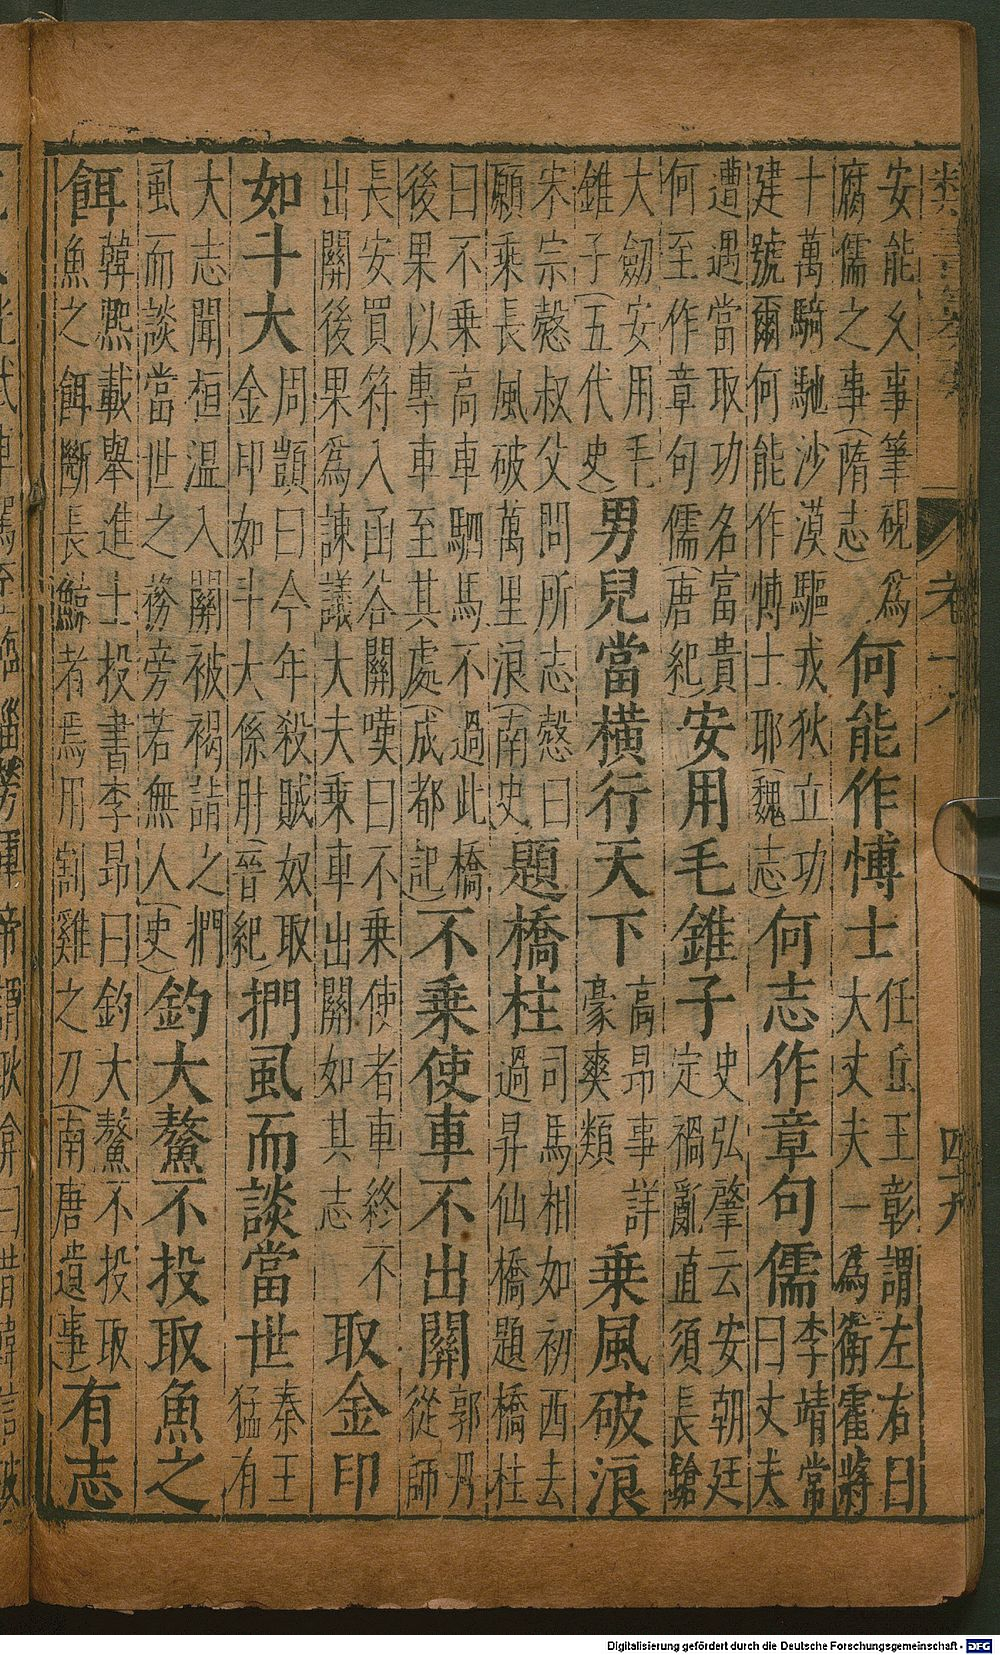 卷十八 四十九
安能久事筆硯為
腐儒之事(隋志)
何能作博士
任丘王彰謂左右曰
大丈夫一為衛霍將
十萬騎馳沙漠驅戎狄立功
建號爾何能作博士耶(魏志)
何志作章句儒
李靖常
曰丈夫
遭遇當取功名富貴
何至作章句儒(唐紀)
安用毛錐子
史弘肇云安朝廷
定禍亂直須長鎗
大劒安用毛
錐子(五代史)
男兒當橫行天下
高昂事詳
豪爽類
乘風破浪
宋宗愨叔父問所志愨曰
願乘長風破萬里浪(南史)
題橋柱
司馬相如初西去
過昇仙橋題橋柱
曰不乘高車駟馬不過此橋
後果以專車至其處(成都記)
不乘使車不出關
郭丹
從師
長安買符入函谷關嘆曰不乘使者車終不
出關後果為諫議大夫乘車出關如其志
取金印
如斗大
周顗曰今年殺賊奴取
金印如斗大係肘(晉紀)
捫虱而談當世
秦王
猛有
大志聞桓温入關被褐詣之捫
虱而談當世之務旁若無人(史)
釣大鰲不投取魚之
餌
韓熈載舉進士投書李昂曰釣大鰲不投取
魚之餌斷長鯨者焉用割雞之刀(南唐遺事)
有志
Digitalisierung gefördert durch die Deutsche Forschungsgemeinschaft - DFG